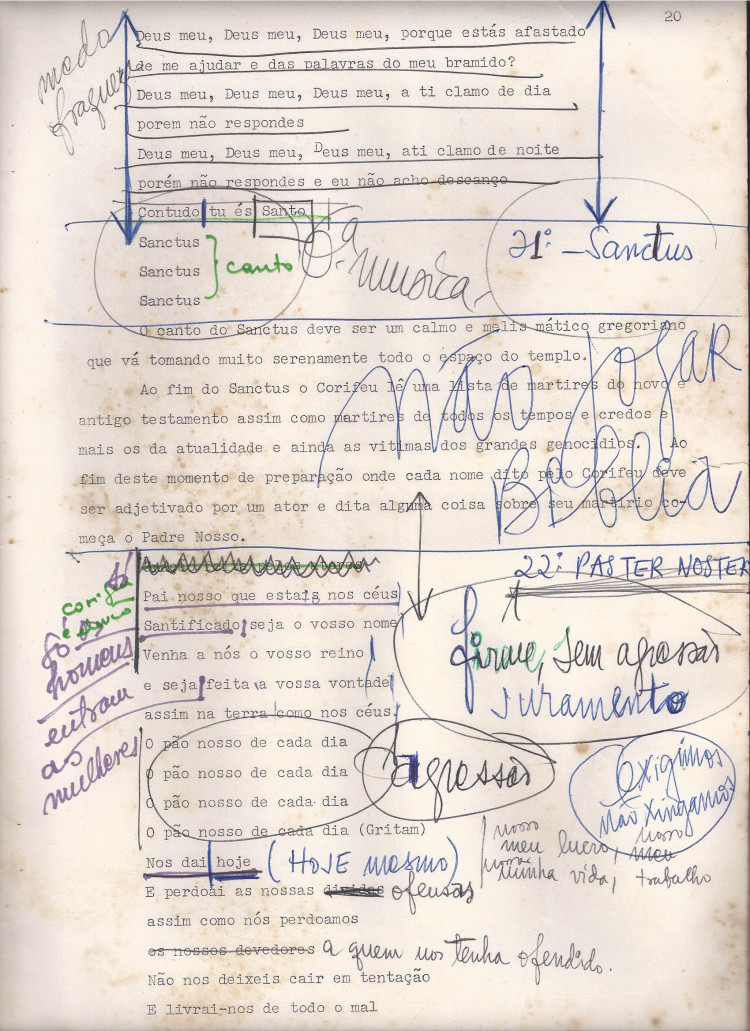 20
Deus meu, Deus meu, Deus meu, porque estás afastado
de me ajudar e das palavras do meu bramido?
medo
fraqueza
Deus meu, Deus meu, Deus meu, a ti clamo de dia
porem não respondes
Deus meu, Deus meu, Deus meu, ati clamo de noite
porém não respondes e eu não acho descanço
Contudo tu és Santo
Sanctus
Sanctus
Sanctus
canto
musica
21º - Sanctus
O canto do Sanctus deve ser um calmo e melis mático gregoriano
que vá tomando muito serenamente todo o espaço do templo.
Ao fim do Sanctus o Corifeu lê uma lista de martires do novo e
antigo testamento assim como martires de todos os tempos e credos e
mais os da atualidade e ainda as vitimas dos grandes genocidios. Ao
fim deste momento de preparação onde cada nome dito pelo Corifeu deve
ser adjetivado por um ator e dita alguma coisa sobre seu martirio co-
meça o Padre Nosso.
não jogar
Biblia
22º PASTER NOSTER
Pai nosso que estais nos céus
Santificado seja o vosso nome
Venha a nós o vosso reino
e seja feita a vossa vontade
assim na terra como nos céus
Só os
homens
entram
as
mulheres
firme, sem agressão
juramento
O pão nosso de cada dia
O pão nosso de cada dia
O pão nosso de cada dia
O pão nosso de cada dia (Gritam)
agressão
Exigimos
não xingamos
Nos dai hoje (HOJE MESMO)
nosso
meu lucro, nosso
meu
minha vida, trabalho
E perdoai as nossas dividas ofensas
assim como nós perdoamos
os nossos devedores a quem nos tenha ofendido.
Não nos deixeis cair em tentação
E livrai-nos de todo o mal